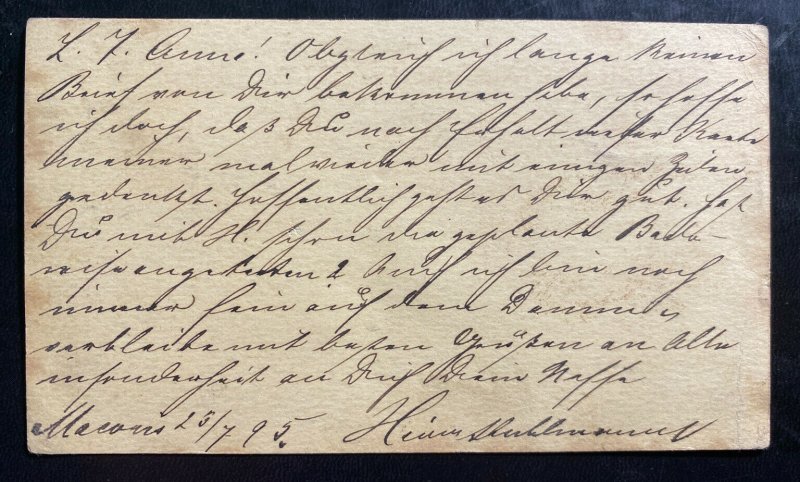 L. T. Anna! Obgleich ich lange keinen
Brief von Dir bekommen habe, so hoffe
ich doch, daß Du nach Erhalt dieser Karte
meiner mal wieder mit einigen Zeilen
gedenkst. Hoffentlich geht es Dir gut. Hast
Du mit H. schon die geplante Bade-
reise angetreten? Auch ich bin noch
immer fein auf dem Damm &
verbleibe mit besten Grüßen an Alle
insonderheit an Dich Dein Neffe
25/7 95.